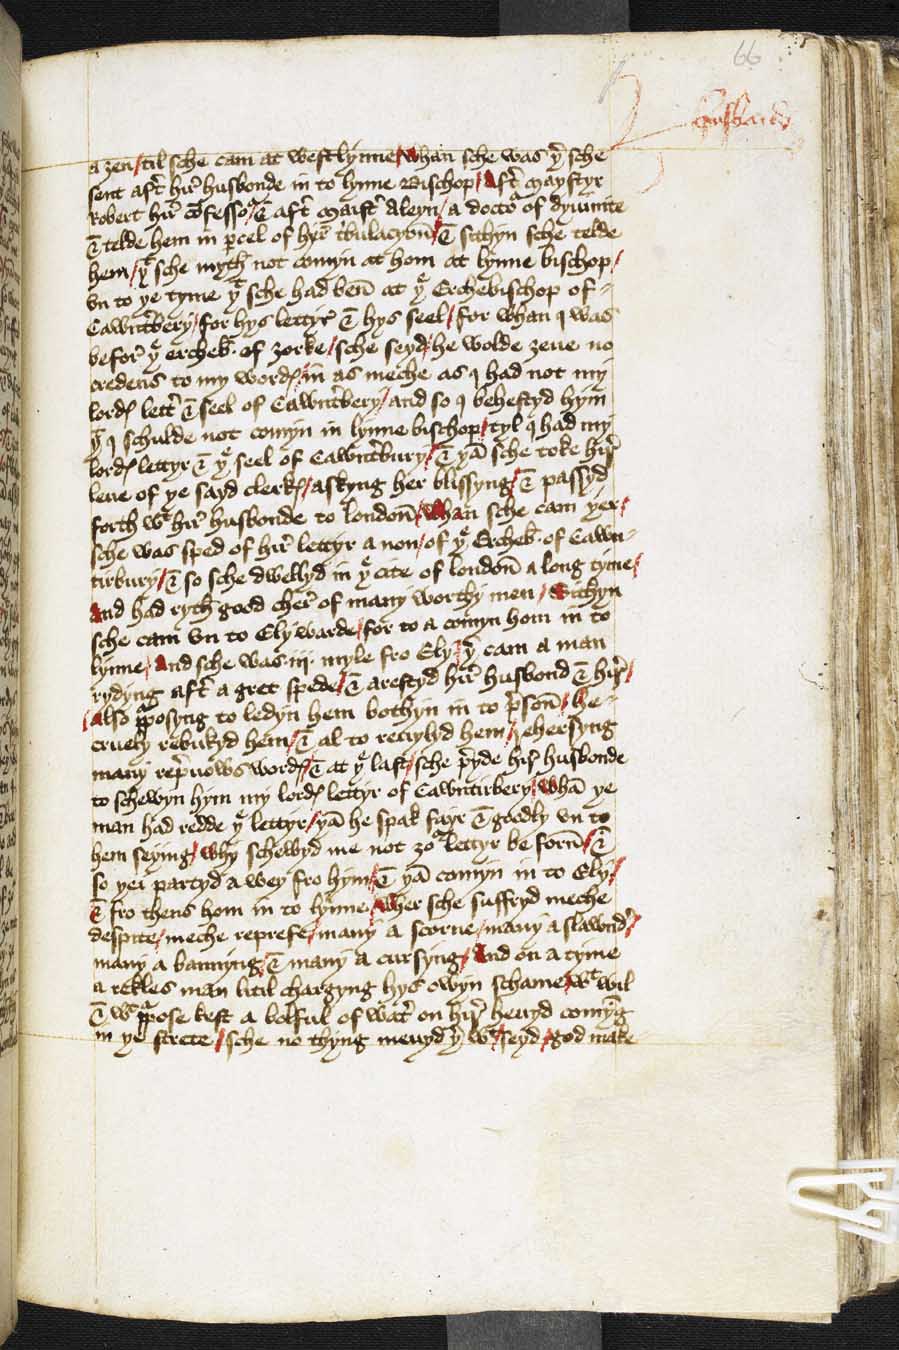 66
husband
a ȝen / til sche cam at west lynne / whan sche was þͬ sche
sent aft̉ hir̉ husbonde in to lynne Bischop / Aft̉ maystyr
Robert hir̉ cōfessoᷣ & aft̉ maist̉ Aleyn / a doctoᷣ of dyuinite
& telde hem in p̲cel of her̉ t̉bulacyoūs / & sithyn sche telde
hem / yͭ sche myth not comyn at hom at lynne bischop /
vn to ye tyme yͭ sche had ben̄ at yͤ Erchebischop of
Cawnt̉bery / for hys lettyr̉ & hys seel / for whan I was
befor̉ yͤ ercheb̄. of ȝorke / sche seyd / he wolde ȝeue no
credens to my wordꝭ / in as meche as I had not my
lordꝭ lett̉ & seel of Cawnt̉bery / and so I behestyd hym
yͭ I schulde not comyn in lynne bischop / tyl I had my
lordꝭ lettyr & yͤ seel of Cawnt̉bury / & yā sche toke hir̉
leue of ye sayd clerkꝭ / askyng her blissyng / & passyd
forth wͭ hir̉ husbonde to london̄ / whan sche cam yer /
sche was sped of hir̉ lettyr a non / of yͤ Ercheb̄. of Cawn
tirbury / & so sche dwellyd in yͤ cite of london̄ a long tyme /
And had ryth good cher̉ of many worthy men / Sithyn
sche cam vn to Ely warde / for to a comyn hom in to
lynne / And sche was .iii. myle fro Ely / yͬ cam a man
rydyng aft̉ a gret spede / & arestyd hir̉ husbond & hir̉ /
/ Also pᷣposyng to ledyn hem bothyn in to p̉son̄ / he
cruely rebukyd hem / & al to reuyled hem / rehersyng
many rep̉uows wordꝭ / & at yͤ last / sche p̉yde hir̉ husbonde
to schewyn hym my lordꝭ lettyr of Cawntirbery / whā ye
man had redde yͤ lettyr / yā he spak fayr & goodly vn to
hem seying / why schewyd me not ȝoᷣ lettyr be forn̄ / &
so yei partyd a wey fro hym / & yā comyn in to Ely /
& fro thens hom in to lynne / wher sche suffryd meche
despite / meche reprefe / many a scorne / many a slawnd̉ /
many a bannyng / & many a cursyng / And on a tyme
a rekles man litil chargyng hys owyn schame / wͭ wil
& wͭ pᷣpose kest a bolful of wat̉ on hir̉ heuyd comȳg
in ye strete / sche no thyng meuyd yͬ wͭ / seyd / god make